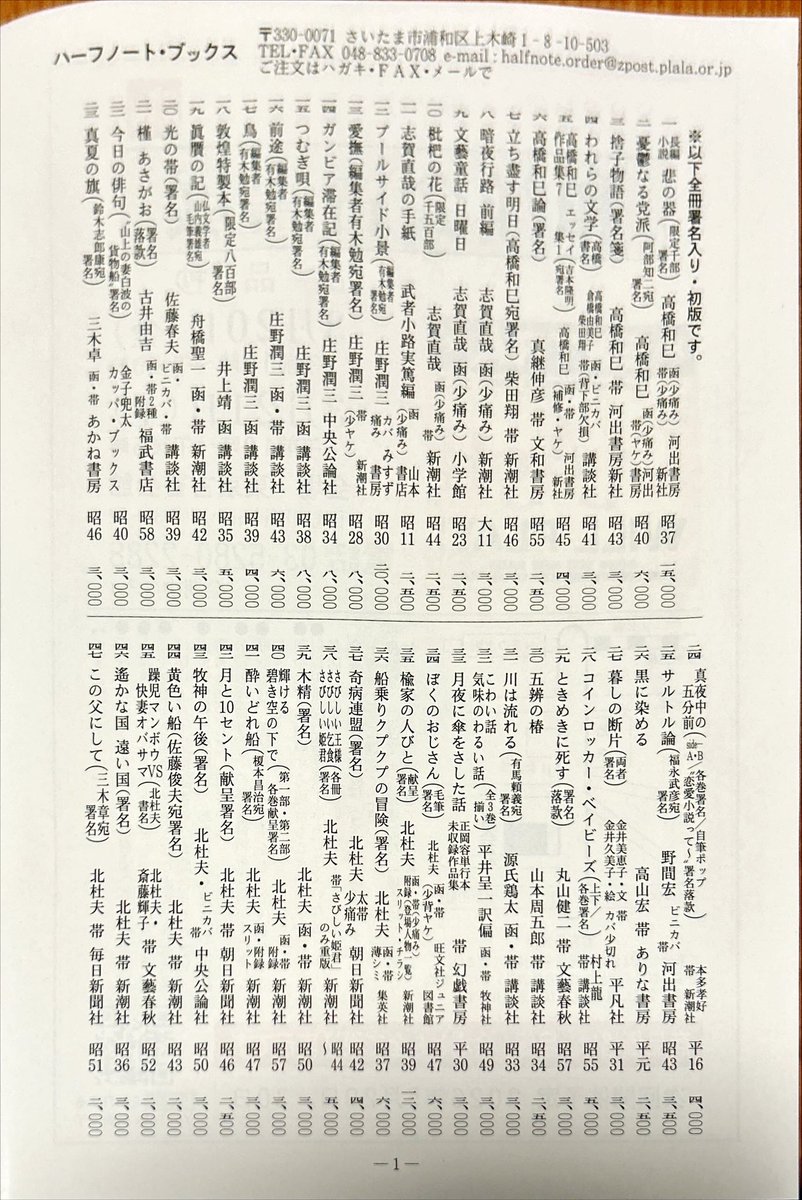 ハーフノート・ブックス
〒330-0071 さいたま市浦和区上木崎1-8-10-503
TEL・FAX 048-833-0708 e-mail : halfnote.order@zpost.plala.or.jp
ご注文はハガキ・FAX・メールで
※以下全冊署名入り・初版です。
一 長編小説 悲の器（限定千部） 高橋和巳 函（少痛み）帯（少痛み） 河出書房新社 昭37 一五、〇〇〇
二 憂鬱なる党派（阿部知二宛署名） 高橋和巳 函（少痛み）帯（ヤケ） 河出書房 昭40 六、〇〇〇
三 捨子物語（署名箋） 高橋和巳 帯 河出書房新社 昭43 三、〇〇〇
四 われらの文学（高橋署名） 高橋和巳・倉橋由美子・柴田翔 函・ビニカバ 帯（背下部欠損） 講談社 昭41 三、〇〇〇
五 高橋和巳作品集7 エッセイ集1（吉本隆明宛署名） 高橋和巳 函・帯（補修・ヤケ） 河出書房新社 昭45 四、〇〇〇
六 高橋和巳論（署名） 真継伸彦 帯 文和書房 昭55 二、五〇〇
七 立ち盡す明日（高橋和巳宛署名） 柴田翔 帯 新潮社 昭46 三、〇〇〇
八 暗夜行路 前編 志賀直哉 函（少痛み） 新潮社 大11 三、〇〇〇
九 文藝童話 日曜日 志賀直哉 函（少痛み） 小学館 昭23 二、五〇〇
一〇 枇杷の花（限定千五百部） 志賀直哉 函（少痛み）帯 新潮社 昭44 二、五〇〇
一一 志賀直哉の手紙 武者小路実篤編 函（少痛み） 山本書店 昭11 二、五〇〇
一二 プールサイド小景（編集者有木勉宛署名） 庄野潤三 カバ痛み みすず書房 昭30 二〇、〇〇〇
一三 愛撫（編集者有木勉宛署名） 庄野潤三 帯（少ヤケ） 新潮社 昭28 八、〇〇〇
一四 ガンビア滞在記（編集者有木勉宛署名） 庄野潤三 中央公論社 昭34 八、〇〇〇
一五 つむぎ唄（編集者有木勉宛署名） 庄野潤三 函 講談社 昭38 八、〇〇〇
一六 前途（編集者有木勉宛署名） 庄野潤三 函・帯 講談社 昭43 六、〇〇〇
一七 鳥（編集者有木勉宛署名） 庄野潤三 函 講談社 昭39 四、〇〇〇
一八 敦煌特製本（限定八百部） 井上靖 函 講談社 昭35 五、〇〇〇
一九 眞贋の記（仏文学者山内義雄宛毛筆署名） 舟橋聖一 函・帯 新潮社 昭42 三、〇〇〇
二〇 光の帯（署名） 佐藤春夫 函・ビニカバ・帯 講談社 昭39 三、〇〇〇
二一 槿 あさがお（署名）（落款） 古井由吉 函・帯2種 附録 福武書店 昭58 三、〇〇〇
二二 今日の俳句（“山上の妻白波の貨物船”署名） 金子兜太 カッパ・ブックス 昭40 三、〇〇〇
二三 真夏の旗（鈴木志郎康宛署名） 三木卓 函・帯 あかね書房 昭46 三、〇〇〇
二四 真夜中の五分前（side-A・B 各巻署名／自筆ポップ“恋愛小説って～”署名落款） 本多孝好 帯 新潮社 平16 四、〇〇〇
二五 サルトル論（福永武彦宛署名） 野間宏 ビニカバ 帯 河出書房 昭43 三、五〇〇
二六 黒に染める 高山宏 帯 ありな書房 平元 二、五〇〇
二七 暮しの断片（両者署名） 金井美恵子・文 金井久美子・絵 帯 カバ少切れ 平凡社 平31 三、〇〇〇
二八 コインロッカー・ベイビーズ（上下／各巻署名） 村上龍 帯 講談社 昭55 五、〇〇〇
二九 ときめきに死す（署名）（落款） 丸山健二 帯 文藝春秋 昭57 三、〇〇〇
三〇 五辨の椿 山本周五郎 帯 講談社 昭34 二、五〇〇
三一 川は流れる（有馬頼義宛署名） 源氏鶏太 函・帯 講談社 昭33 三、〇〇〇
三二 こわい話 気味のわるい話（全3巻揃い） 平井呈一訳偏 函・帯 牧神社 昭49 三、〇〇〇
三三 月夜に傘をさした話 正岡容単行本未収録作品集 帯 幻戯書房 平30 三、〇〇〇
三四 ぼくのおじさん（毛筆署名） 北杜夫 函・帯（少背ヤケ） 旺文社ジュニア図書館 昭47 六、〇〇〇
三五 楡家の人びと（献呈署名） 北杜夫 函・帯（少痛み）附録（登場人物一覧）スリット・チラシ 新潮社 昭39 一二、〇〇〇
三六 船乗りクプクプの冒険（署名） 北杜夫 函・帯 薄シミ 集英社 昭37 六、〇〇〇
三七 奇病連盟（署名） 北杜夫 太帯 少痛み 朝日新聞社 昭42 四、〇〇〇
三八 さびしい王様 さびしい乞食 さびしい姫君（各冊署名） 北杜夫 帯「さびしい姫君」のみ重版 新潮社 昭44～ 五、〇〇〇
三九 木精（署名） 北杜夫 函・帯 新潮社 昭50 三、〇〇〇
四〇 輝ける碧き空の下で（第一部・第二部 各巻献呈署名） 北杜夫 函・帯 附録 新潮社 昭57 三、〇〇〇
四一 酔いどれ船（榎本昌治宛署名） 北杜夫 函・附録 スリット 新潮社 昭47 三、〇〇〇
四二 月と10セント（献呈署名） 北杜夫 帯 朝日新聞社 昭46 二、五〇〇
四三 牧神の午後（署名） 北杜夫・ビニカバ 帯 中央公論社 昭50 三、〇〇〇
四四 黄色い船（佐藤俊夫宛署名） 北杜夫 帯 新潮社 昭43 二、〇〇〇
四五 躁児マンボウVS快妻オバサマ（北杜夫署名） 北杜夫・斎藤輝子 帯 文藝春秋 昭52 二、〇〇〇
四六 遙かな国 遠い国（署名） 北杜夫 帯 新潮社 昭36 三、〇〇〇
四七 この父にして（三木章宛署名） 北杜夫 帯 毎日新聞社 昭51 二、〇〇〇
—1—